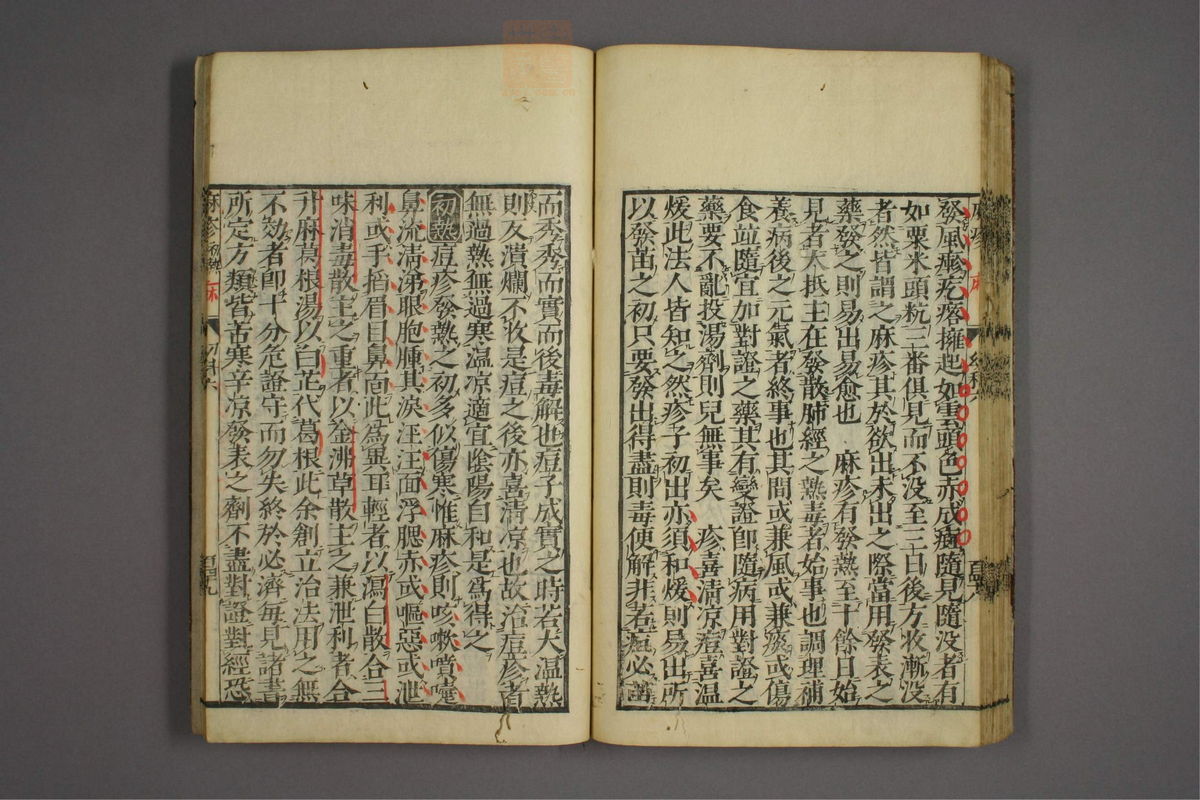 發風癮疙瘩擁起如雲頭色赤成斑隨見隨没者有
如粟米頭杭三番俱見而不没至三日後方收漸没
者然皆謂之麻疹其於欲出未出之際當用發表之
藥發之則易出易愈也　麻疹有發熱至十餘日始
見者大抵主在發散肺經之熱毒者始事也調理補
養病後之元氣者終事也其間或兼風或兼痰或傷
食竝隨宜加對證之藥其有變證卽隨病用對證之
藥要不亂投湯劑則兒無事矣　疹喜清凉痘喜温
煖此法人皆知之然疹子初出亦須和煖則易出所
以發苗之初只要發出得盡則毒便解非若痘必苗
而秀秀而實而後毒解也痘子成實之時若大温熱
則反潰爛不收是痘之後亦喜清凉也故治痘疹者
無過熱無過寒温凉適宜陰陽自和是爲得之
初熱痘疹發熱之初多似傷寒惟麻疹則咳嗽噴嚏
鼻流清涕眼胞腫其淚汪汪面浮腮赤或嘔惡或泄
利或手掐眉目鼻面此爲異耳輕者以瀉白散合三
味消毒散主之重者以金沸草散主之兼泄利者合
升麻葛根湯以白芷代葛根此余創立治法用之無
不効者卽十分危證守而勿失終於必濟每見諸書
所定方類皆苦寒辛凉發表之劑不盡對證對經恐
麻疹 初熱
百四九